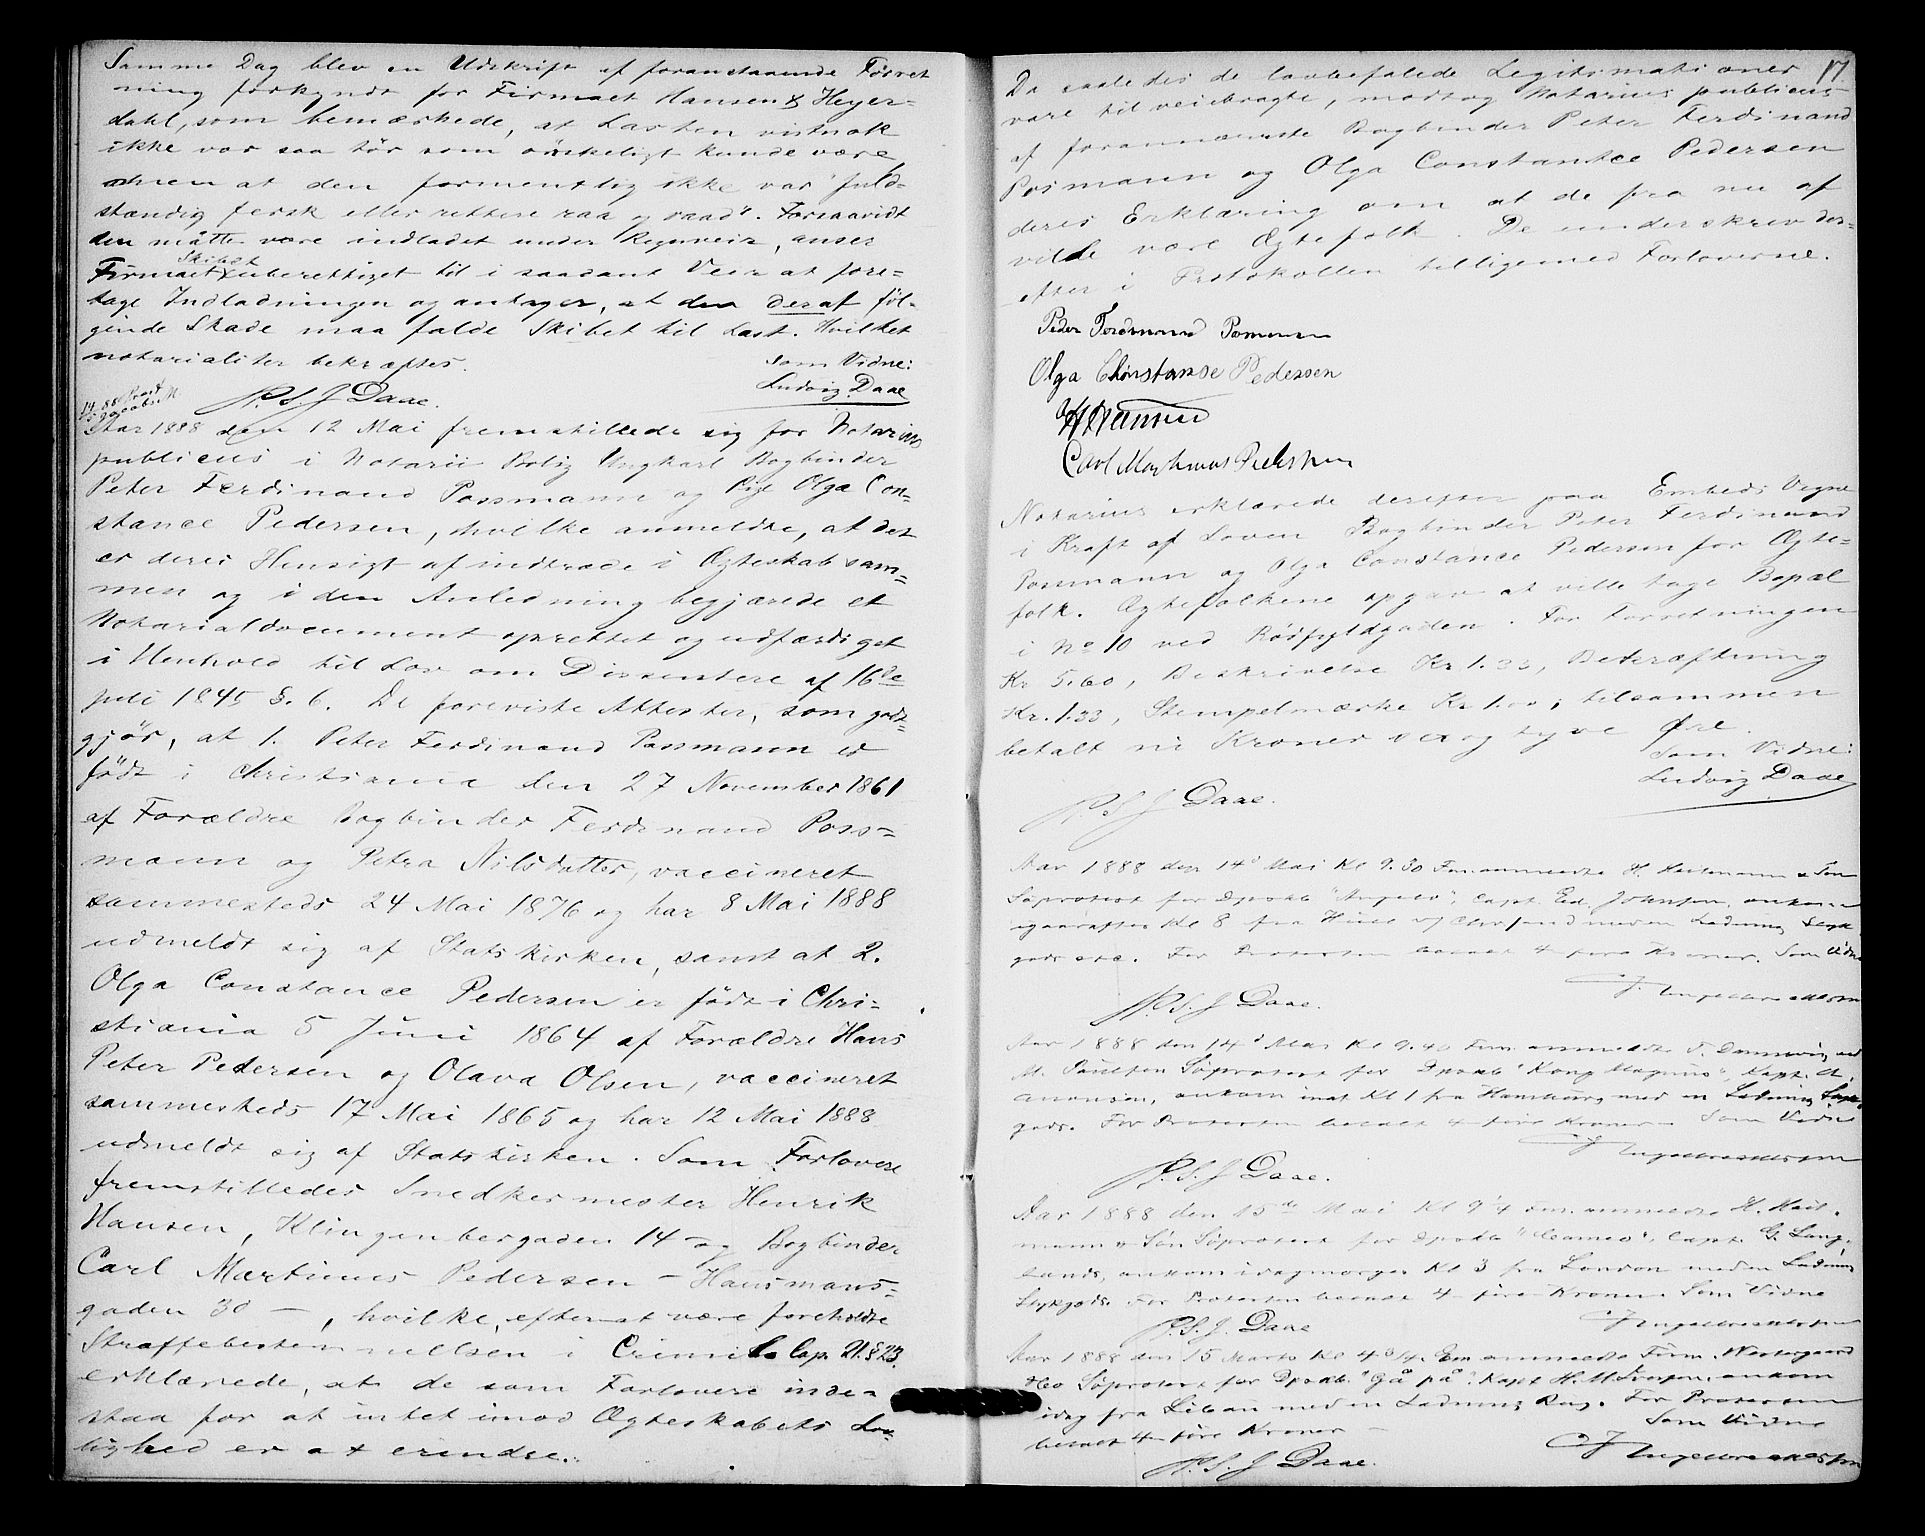 Samme Dag blev en Udskrift af foranstaaende Forret
ning forkyndt for Firmaet Hansen & Heyer-
dahl, som bemærkede, at Lasten vistnok
ikke var saa tør som ønskeligt kunde være
men at den formentlig ikke var "fuld-
stændig fersk eller rettere raa og vaad". Forsaavidt
den måtte være indladet under Regnveir, anser
Firmaet Skibet uberettiget til i saadant Veir at fore-
tage Indladningen og antager, at den deraf føl-
gende Skade maa falde Skibet til Last. Hvilket
notarialiter bekræftes.
Som Vidne:
Ludvig Daae
P.S.J Daae.
Aar 1888 den 12 Mai fremstillede sig for Notarius
publicus i Notarii Bolig Ungkarl Bogbinder
Peter Ferdinand Possmann og Pige Olga Con-
stance Pedersen, hvilke anmeldte, at det
er deres Hensigt at indtræde i Ægteskab sam-
men og i den Anledning begjærede et
Notarialdocument oprettet og udfærdiget
i Henhold til Lov om Dissentere af 16de
juli 1845 §. 6. De foreviste Attester, som godt-
gjør, at 1. Peter Ferdinand Possmann er
født i Christiania den 27 November 1861
af Forældre Bogbinder Ferdinand Poss-
mann og Petra Nilsdatter, vaccineret
sammesteds 24 Mai 1876 og har 8 Mai 1888
udmeldt sig af Statskirken, samt at 2.
Olga Constance Pedersen er født i Chri-
stiania 5 Juni 1864 af Forældre Hans
Peter Pedersen og Olava Olsen, vaccineret
sammesteds 17 Mai 1865 og har 12 Mai 1888
udmeldt sig af Statskirken. Som Forlovere
fremstilledes Snedkermester Henrik
Hansen, Klingenberggaden 14 - og Bogbinder
Carl Martinus Pedersen - Hausmans-
gaden 30 -, hvilke, efter at være foreholdt
Straffebestemmelsen i Criml. Cap. 21. § 23
erklærede, at de som Forlovere inde-
staa for at intet imod Ægteskabets Lov-
lighed er at erindre.
17
Da saaledes de lovbefalede Legitimationer
vare tilveiebragte, modtog Notarius publicus
af forannævnte Bogbinder Peter Ferdinand
Posmann og Olga Constance Pedersen
deres Erklæring om at de fra nu af
vilde være Ægtefolk. De underskrev der-
efter i Protokollen tilligemed Forloverne.
Peder Ferdinand Posmann
Olga Chonstanse Pedersen
H Hansen
Carl Marthinus Pedersen
Notarius erklærede derefter paa Embeds Vegne
i Kraft af Loven Bogbinder Peter Ferdinand
Possmann og Olga Constance Pedersen for Ægte-
folk. Ægtefolkene opgav at ville tage Bopæl
i No 10 ved Rødfyldgaden. For Forretningen
Kr 5.60, Beskrivelse Kr 1.33, Bekræftning
Kr. 1.33, Stempelmærke Kr 1.00; tilsammen
betalt ni Kroner sex og tyve Øre.
Som Vidne:
Ludvig Daae
P.S.J Daae.
Aar 1888 den 14d Mai Kl 9.30 Fm. anmeldte H. Heitmann & Søn
Søprotest for Dpskb "Angelo", Capt. Ed. Johnson, ankom
igaaraftes Kl 8 fra Hull v/ Chrsand med en Ladning Styk
gods etc. For Protesten betalt 4 - fire Kroner. Som Vidne
P.S.J Daae.
Aar 1888 den 14d Mai Kl 9.40 Fm. anmeldte
M. Paulsen Søprotest for Dpskb "Kong Magnus", Kapt. A.
Aronsen, ankom inat Kl 1 fra Hamburg med en Ladning Styk-
gods. For Protesten betalt 4 - fire Kroner - Som Vidne
P.S.J Daae.
Aar 1888 den 15de Mai Kl 9 1/4 Fm. anmeldte H. Heit-
mann & Søn Søprotest for Dpskb "Cameo", Capt. G. Lang-
lands, ankom idagmorges Kl 3 fra London med en Ladning
Stykgods. For Protesten betalt 4 - fire Kroner. Som Vidne
P.S.J. Daae
Aar 1888 den 15 Marts Kl 4 3/4 Em anmeldte Firm. Westergaard
&Co Søprotest for Dpskb. "Gå på", Kapt H. M. ankom
idag fra Libau med en Ladning Rug. For Protesten
betalt 4 - fire Kroner -
Som Vidne
P.S.J Daae.